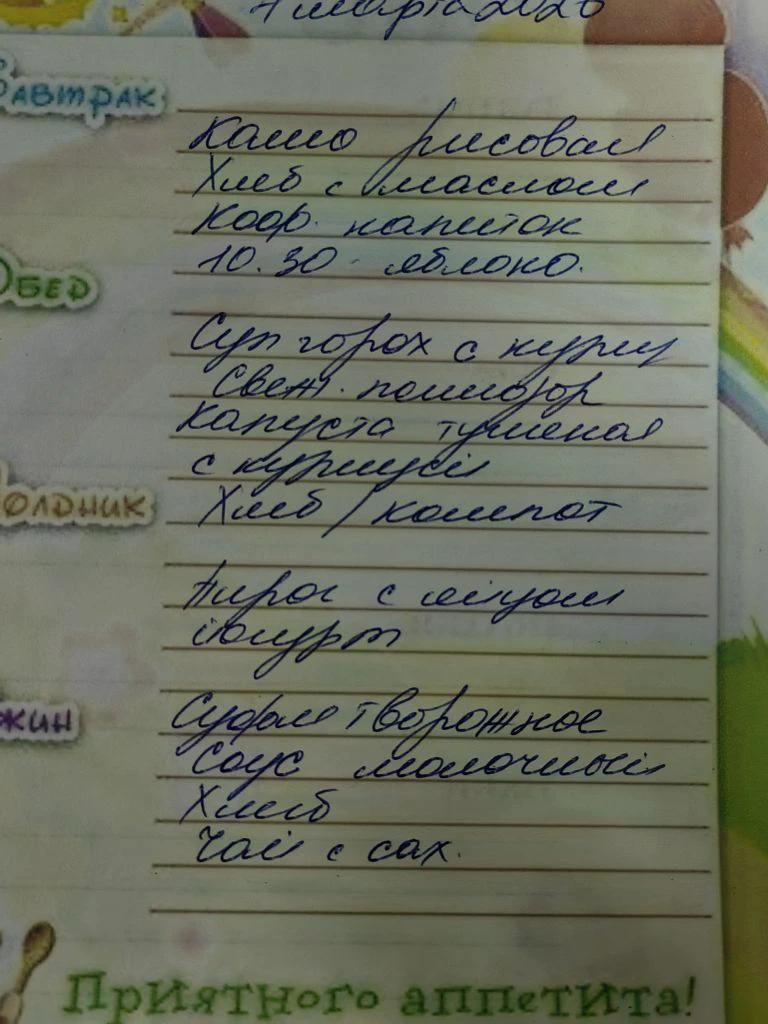 марта 2026
Завтрак
Каша рисовая
Хлеб с маслом
Коф. напиток
10.30 яблоко.
Обед
Суп горох с куриц
Свеж. помидор
Капуста тушеная
с курицей
Хлеб / компот
Полдник
Пирог с яйцом
йогурт
Ужин
Суфле творожное
Соус молочный
Хлеб
Чай с сах.
Приятного аппетита!